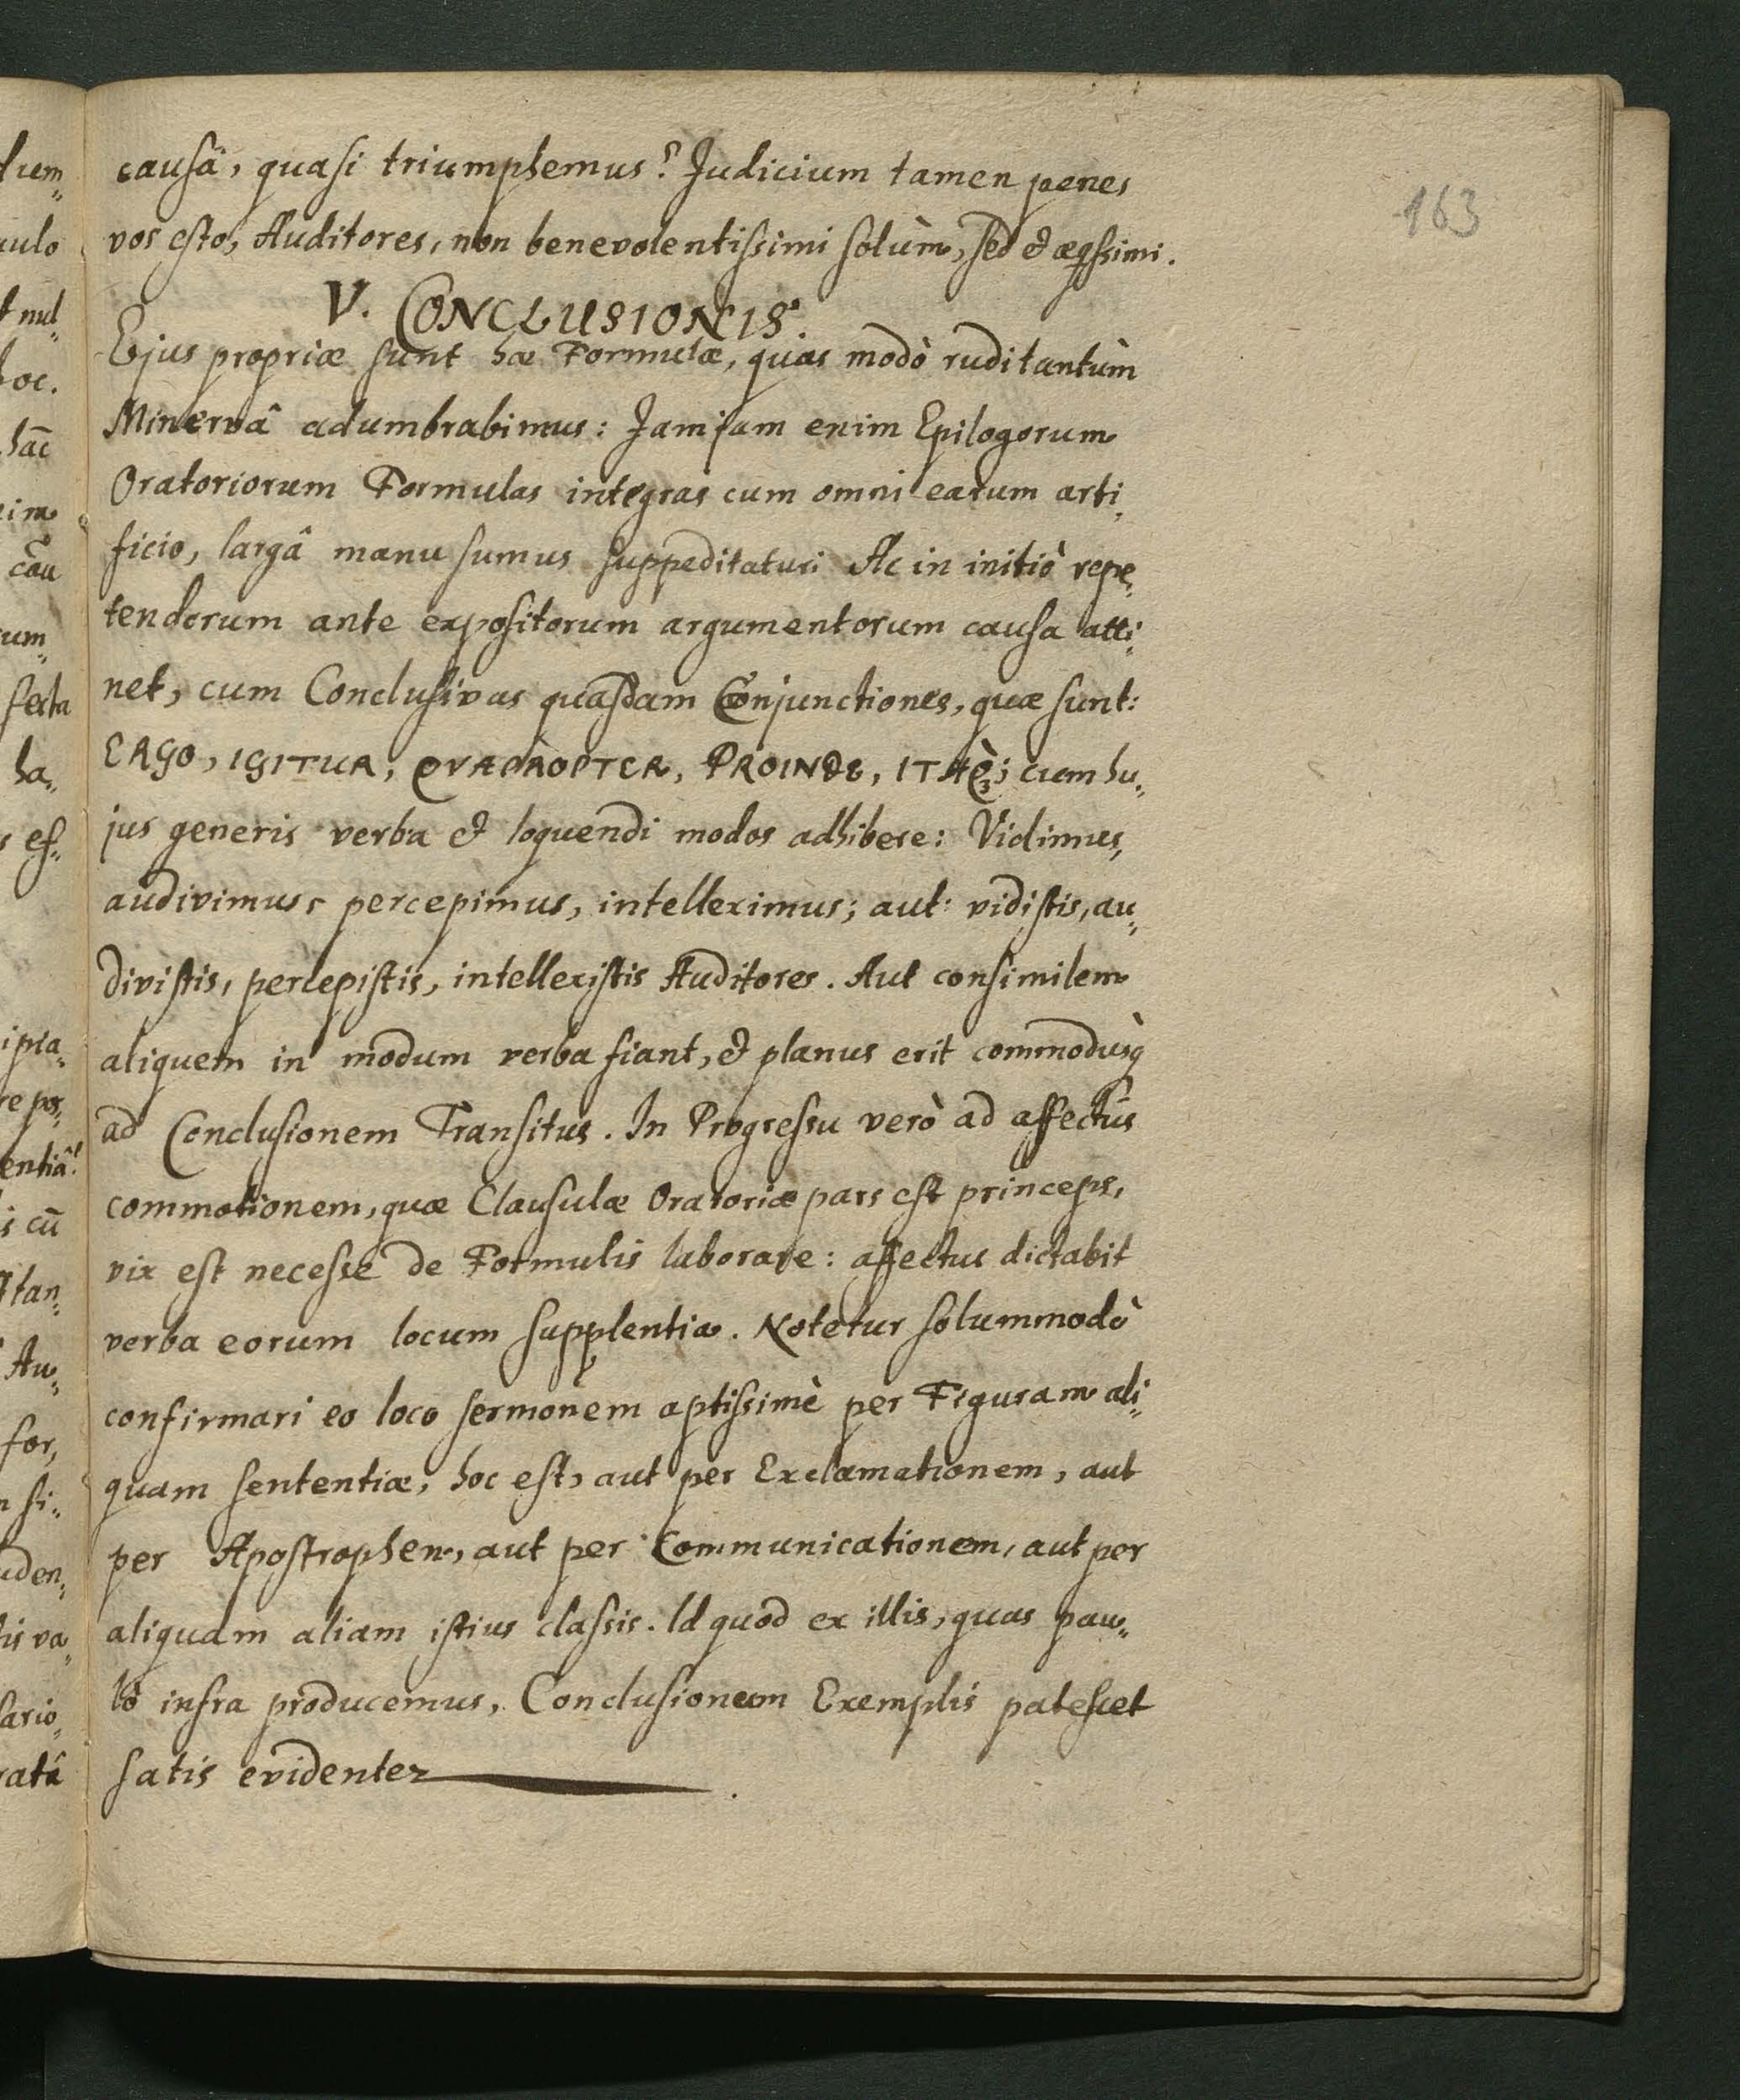 163
causâ, quasi triumphemus? Judicium tamen penes
vos esto, Auditores, non benevolentissimi solùm, sed & æqssimi.
V. CONCLUSIONIS.
Ejus propriæ sunt hæ Formulæ, quas modò rudi tantùm
Minervâ adumbrabimus: Jamjam enim Epilogorum
Oratoriorum Formulas integras cum omni earum arti„
ficio, largâ manu sumus suppeditaturi Ac in initiò repe„
tendorum ante expositorum argumentorum causa atti„
net, cum Conclusivas quasdam Conjunctiones, quæ sunt:
ERGO, IGITUR, QVAPROPTER, PROINDE, ITAQ;; cum hu„
jus generis verba & loquendi modos adhibere: Vidimus,
audivimus, percepimus, intelleximus; aut: vidistis, au„
divistis, percepistis, intellexistis Auditores. Aut consimilem
aliquem in modum verba fiant, & planus erit commodusq̀
ad Conclusionem Transitus. In Progressu verò ad affectûs
commotionem, quæ Clausulæ Oratoriæ pars est princeps,
vix est necesse de Formulis laborare: affectus dictabit
verba eorum locum supplentia. Notetur solummodò
confirmari eo loco sermonem aptissimè per Figuram ali„
quam sententiæ, hoc est, aut per Exclamationem, aut
per Apostrophen, aut per Communicationem, aut per
aliquam aliam istius classis. Id quod ex illis, quas pau„
lò infra producemus, Conclusionum Exemplis patescet
satis evidenter.